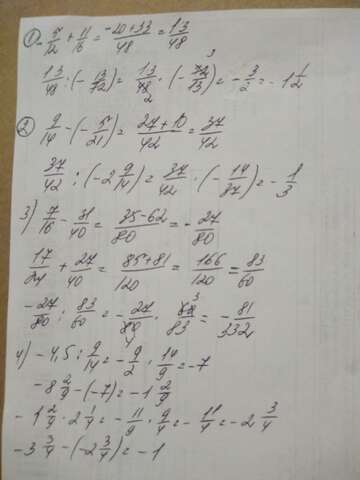 1) -5/12 + 11/16 = (-20+33)/48 = 13/48
13/48 : (-13/72) = 13/48 · (-72/13) = -3/2 = -1 1/2
2) 9/14 - (-5/21) = (27+10)/42 = 37/42
37/42 : (-2 9/14) = 37/42 · (-14/37) = -1/3
3) 7/16 - 31/40 = (35-62)/80 = -27/80
17/24 + 27/40 = (85+81)/120 = 166/120 = 83/60
-27/80 : 83/60 = -27/80 · 60/83 = -81/332
4) -4,5 : 9/14 = -9/2 · 14/9 = -7
-8 2/9 - (-7) = -1 2/9
-1 2/9 · 2 1/4 = -11/9 · 9/4 = -11/4 = -2 3/4
-3 3/4 - (-2 3/4) = -1